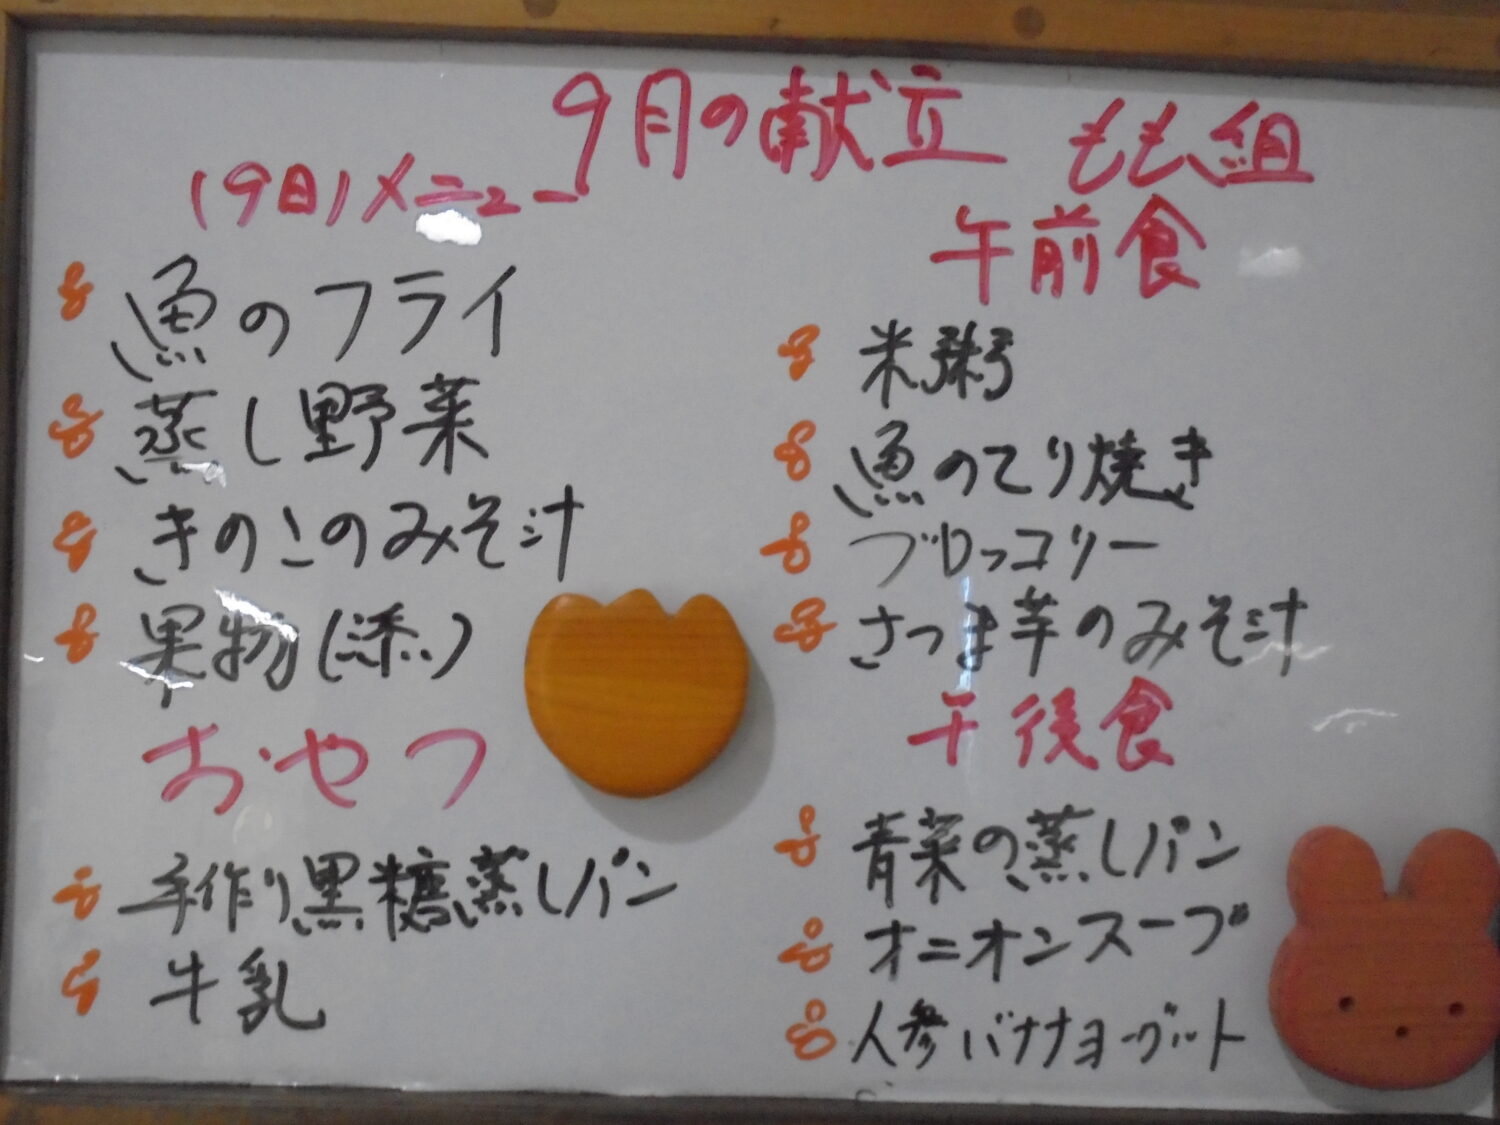 9月の献立
(9日)メニュー
魚のフライ
蒸し野菜
きのこのみそ汁
果物(添)
おやつ
手作り黒糖蒸しパン
牛乳
もも組
午前食
米粥
魚のてり焼き
ブロッコリー
さつま芋のみそ汁
午後食
青菜の蒸しパン
オニオンスープ
人参バナナヨーグルト